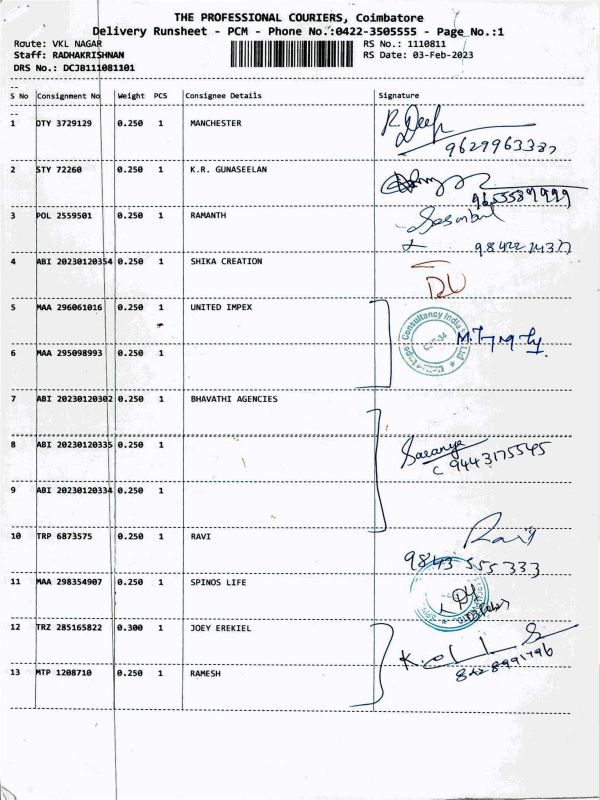 THE PROFESSIONAL COURIERS, Coimbatore
Delivery Runsheet - PCM - Phone No.:0422-3505555 - Page_No.:1
Route: VKL NAGAR RS No.: 1110811
Staff: RADHAKRISHNAN RS Date: 03-Feb-2023
DRS No.: DCJB111081101
S No Consignment No Weight PCS Consignee Details Signature
1 DTY 3729129 0.250 1 MANCHESTER R. Deep
9629963337
2 STY 72260 0.250 1 K.R. GUNASEELAN
9655589999
3 POL 2559501 0.250 1 RAMANTH
4 ABI 20230120354 0.250 1 SHIKA CREATION
5 MAA 296061016 0.250 1 UNITED IMPEX
Consultancy India
6 MAA 295098993 0.250 1
7 ABI 20230120302 0.250 1 BHAVATHI AGENCIES
8 ABI 20230120335 0.250 1 Saranya
C 9443175545
9 ABI 20230120334 0.250 1
10 TRP 6873575 0.250 1 RAVI Ravi
9843 555 333
11 MAA 298354907 0.250 1 SPINOS LIFE
12 TRZ 285165822 0.300 1 JOEY EREKIEL
8428991796
13 MTP 1208710 0.250 1 RAMESH